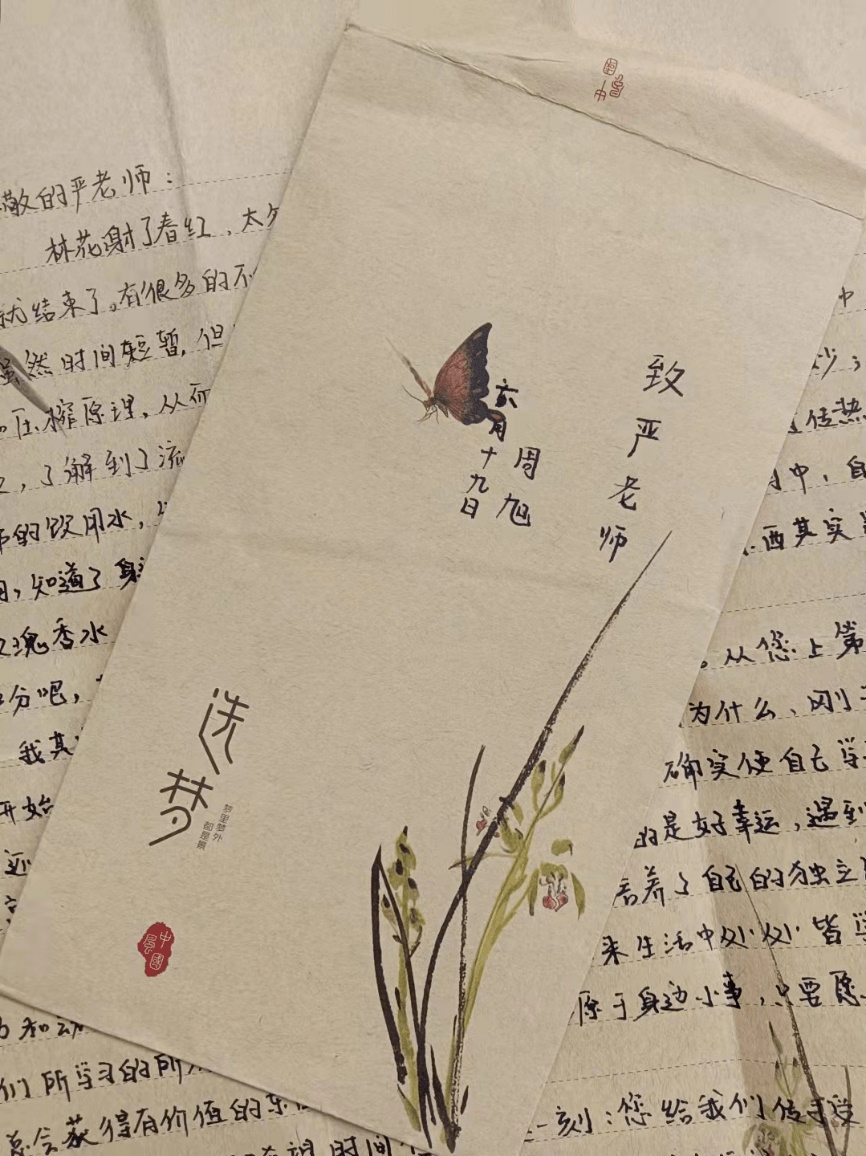 敬的严老师：
林花谢了春红，太
就结束了。有很多的不
虽然时间短暂，但
压榨原理，从而
，了解到了流
的饮用水，
，知道了身
瑰香水
分吧，
我其
开始
还
和动
们所学习的所
总会获得有价值的东
时间
致严老师
周旭
六月十九日
造梦
梦里梦外
都是景
中國風
中国
中
传热
中，自
西其实
。从您上第
为什么、刚
确实使自己学
的是好幸运，遇到
培养了自己的独立
来生活中处处皆学
源于身边小事，只要愿
一刻：您给我们传授